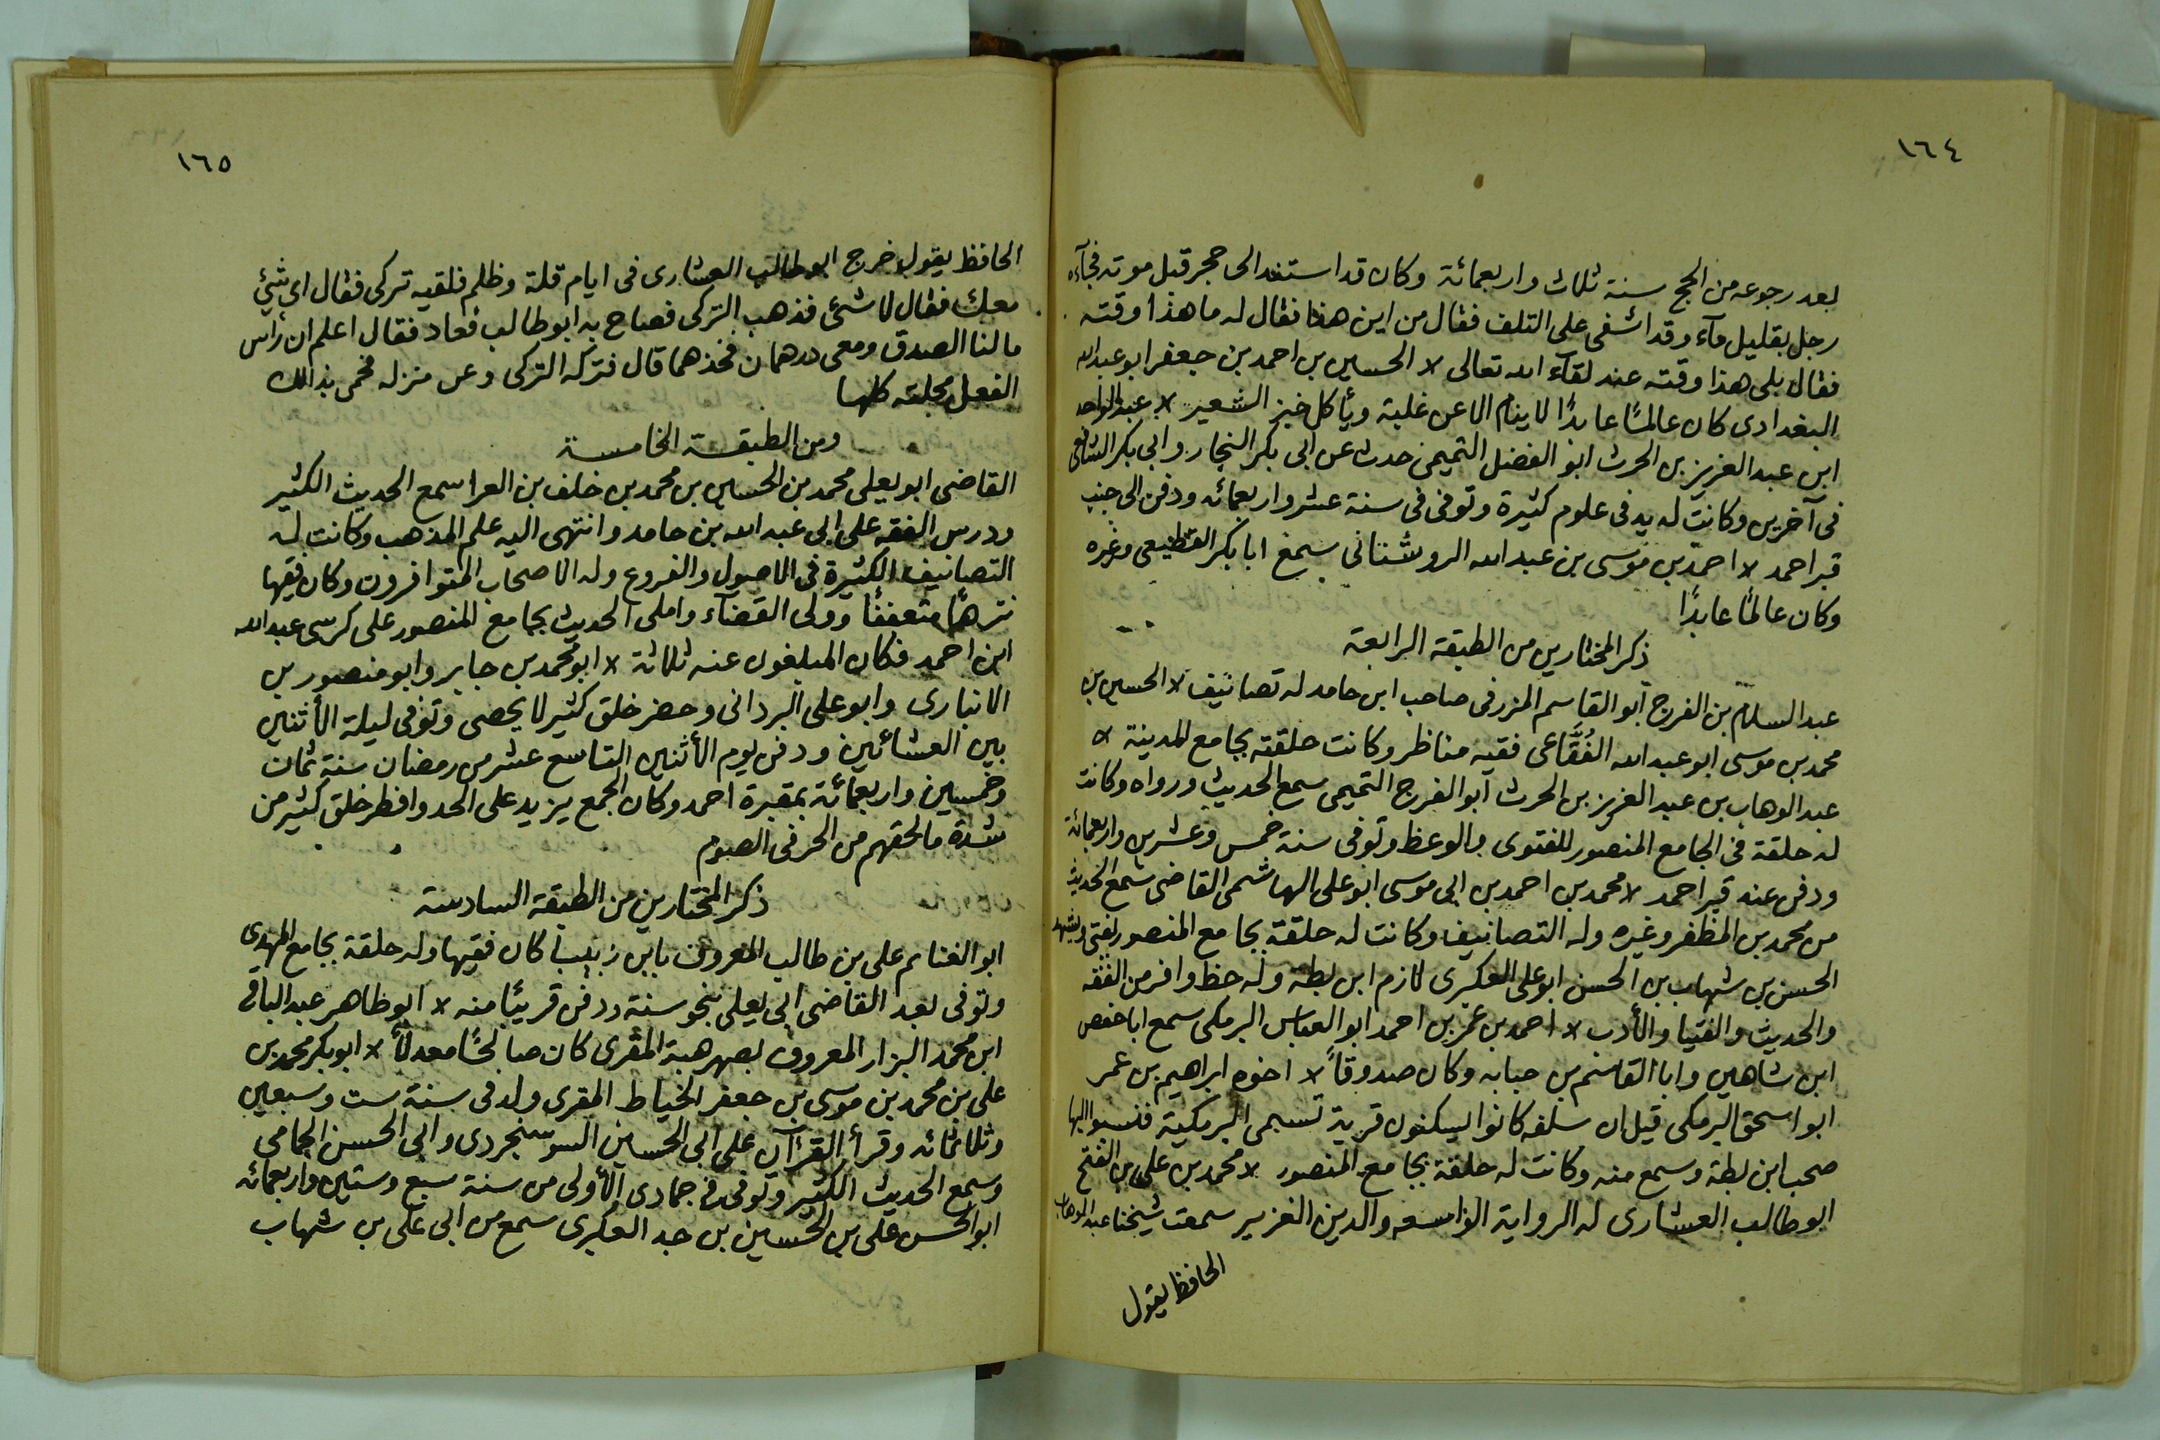 ١٦٤
بعد رجوعه من الحج سنة ثلاث واربعمائة وكان قد استند الى حجر قبل موته فجآءه
رجل بقليل مآء وقد اشفى على التلف فقال من اين هذا فقال له ما هذا وقته
فقال بلى هذا وقته عند لقآء الله تعالى × الحسين بن احمد بن جعفر ابو عبد الله
البغدادى كان عالمًا عابدًا لا ينام الا عن غلبة ويأكل خبز الشعير × عبد الواحد
ابن عبد العزيز بن الحرث ابو الفضل التميمى حدث عن ابى بكر النجار وابى بكر الشافعى
فى آخرين وكانت له يد فى علوم كثيرة وتوفى فى سنة عشر واربعمائه ودفن الى جنب
قبر احمد × احمد بن موسى بن عبد الله الروشنانى سمع ابا بكر القطيعى وغيره
وكان عالمًا عابدًا
ذكر المختارين من الطبقة الرابعة
عبد السلام بن الفرج ابو القاسم المزرفى صاحب ابن حامد له تصانيف × الحسين بن
محمد بن موسى ابو عبد الله الفُقَّاعى فقيه مناظر وكانت حلقته بجامع المدينة ×
عبد الوهاب بن عبد العزيز بن الحرث ابو الفرج التميمى سمع الحديث ورواه وكانت
له حلقة فى الجامع المنصور للفتوى والوعظ وتوفى سنة خمس وعشرين واربعمائة
ودفن عند قبر احمد × محمد بن احمد بن ابى موسى ابو على الهاشمى القاضى سمع الحديث
من محمد بن المظفر وغيره وله التصانيف وكانت له حلقة بجامع المنصور يفتى ويشهد
الحسن بن شهاب بن الحسن ابو على العكبرى لازم ابن بطة وله حظ وافر من الفقه
والحديث والفتيا والأدب × احمد بن عمر بن احمد ابو العباس البرمكى سمع ابا حفص
ابن شاهين وابا القاسم بن حبابه وكان صدوقاً × اخوه ابراهيم بن عمر
ابو اسحق البرمكى قيل ان سلفه كانوا يسكنون قرية تسمى البرمكية فنسبوا اليها
صحب ابن بطة وسمع منه وكانت له حلقة بجامع المنصور × محمد بن على بن الفتح
ابو طالب العشارى له الرواية الواسعه والدين الغزير سمعت شيخنا عبد الوهاب
الحافظ يقول
١٦٥
الحافظ يقول خرج ابو طالب العشارى فى ايام قلة وظلم فلقيه تركى فقال اى شئ
معك فقال لا شئ فذهب التركى فصاح به ابو طالب فعاد فقال اعلم ان رأس
مالنا الصدق ومعى درهمان فخذهما قال فتركه التركى وعن منزله فحمى بذالك
الفعل محلته كلها
ومن الطبقة الخامسة
القاضى ابو يعلى محمد بن الحسين بن محمد بن خلف بن الفرا سمع الحديث الكثير
ودرس الفقه على ابى عبد الله بن حامد وانتهى اليه علم المذهب وكانت له
التصانيف الكثيرة فى الاصول والفروع وله الاصحاب المتوافرون وكان فقيها
نزهًا متعففًا وولى القضآء واملى الحديث بجامع المنصور على كرسى عبد الله
ابن احمد فكان المبلغون عنه ثلاثة × ابو محمد بن جابر وابو منصور بن
الانبارى وابو على البردانى وحضر خلق كثير لا يحصى وتوفى ليلة الأثنين
بين العشائين ودفن يوم الأثنين التاسع عشر من رمضان سنة ثمان
وخمسين واربعمائة بمقبرة احمد وكان الجمع يزيد على الحد وافطر خلق كثير من
شدة ما لحقهم من الحر فى الصوم
ذكر المختارين من الطبقة السادسة
ابو الغنائم على بن طالب المعروف بابن زبيبا كان فقيها وله حلقة بجامع المهدى
وتوفى بعد القاضى ابى يعلى بنحو سنة ودفن قريبًا منه × ابو طاهر عبد الباقى
ابن محمد البزار المعروف بصهر هبة المقرى كان صالحًا معدلاً × ابو بكر محمد بن
على بن محمد بن موسى بن جعفر الخياط المقرى ولد فى سنة ست وسبعين
وثلاثمائه وقرأ القرآن على ابى الحسين السوسنجردى وابى الحسن الحمامى
وسمع الحديث الكثير وتوفى فى جمادى الأولى من سنة سبع وستين واربعمائه
ابو الحسن على بن الحسين بن جد العكبرى سمع من ابى على بن شهاب